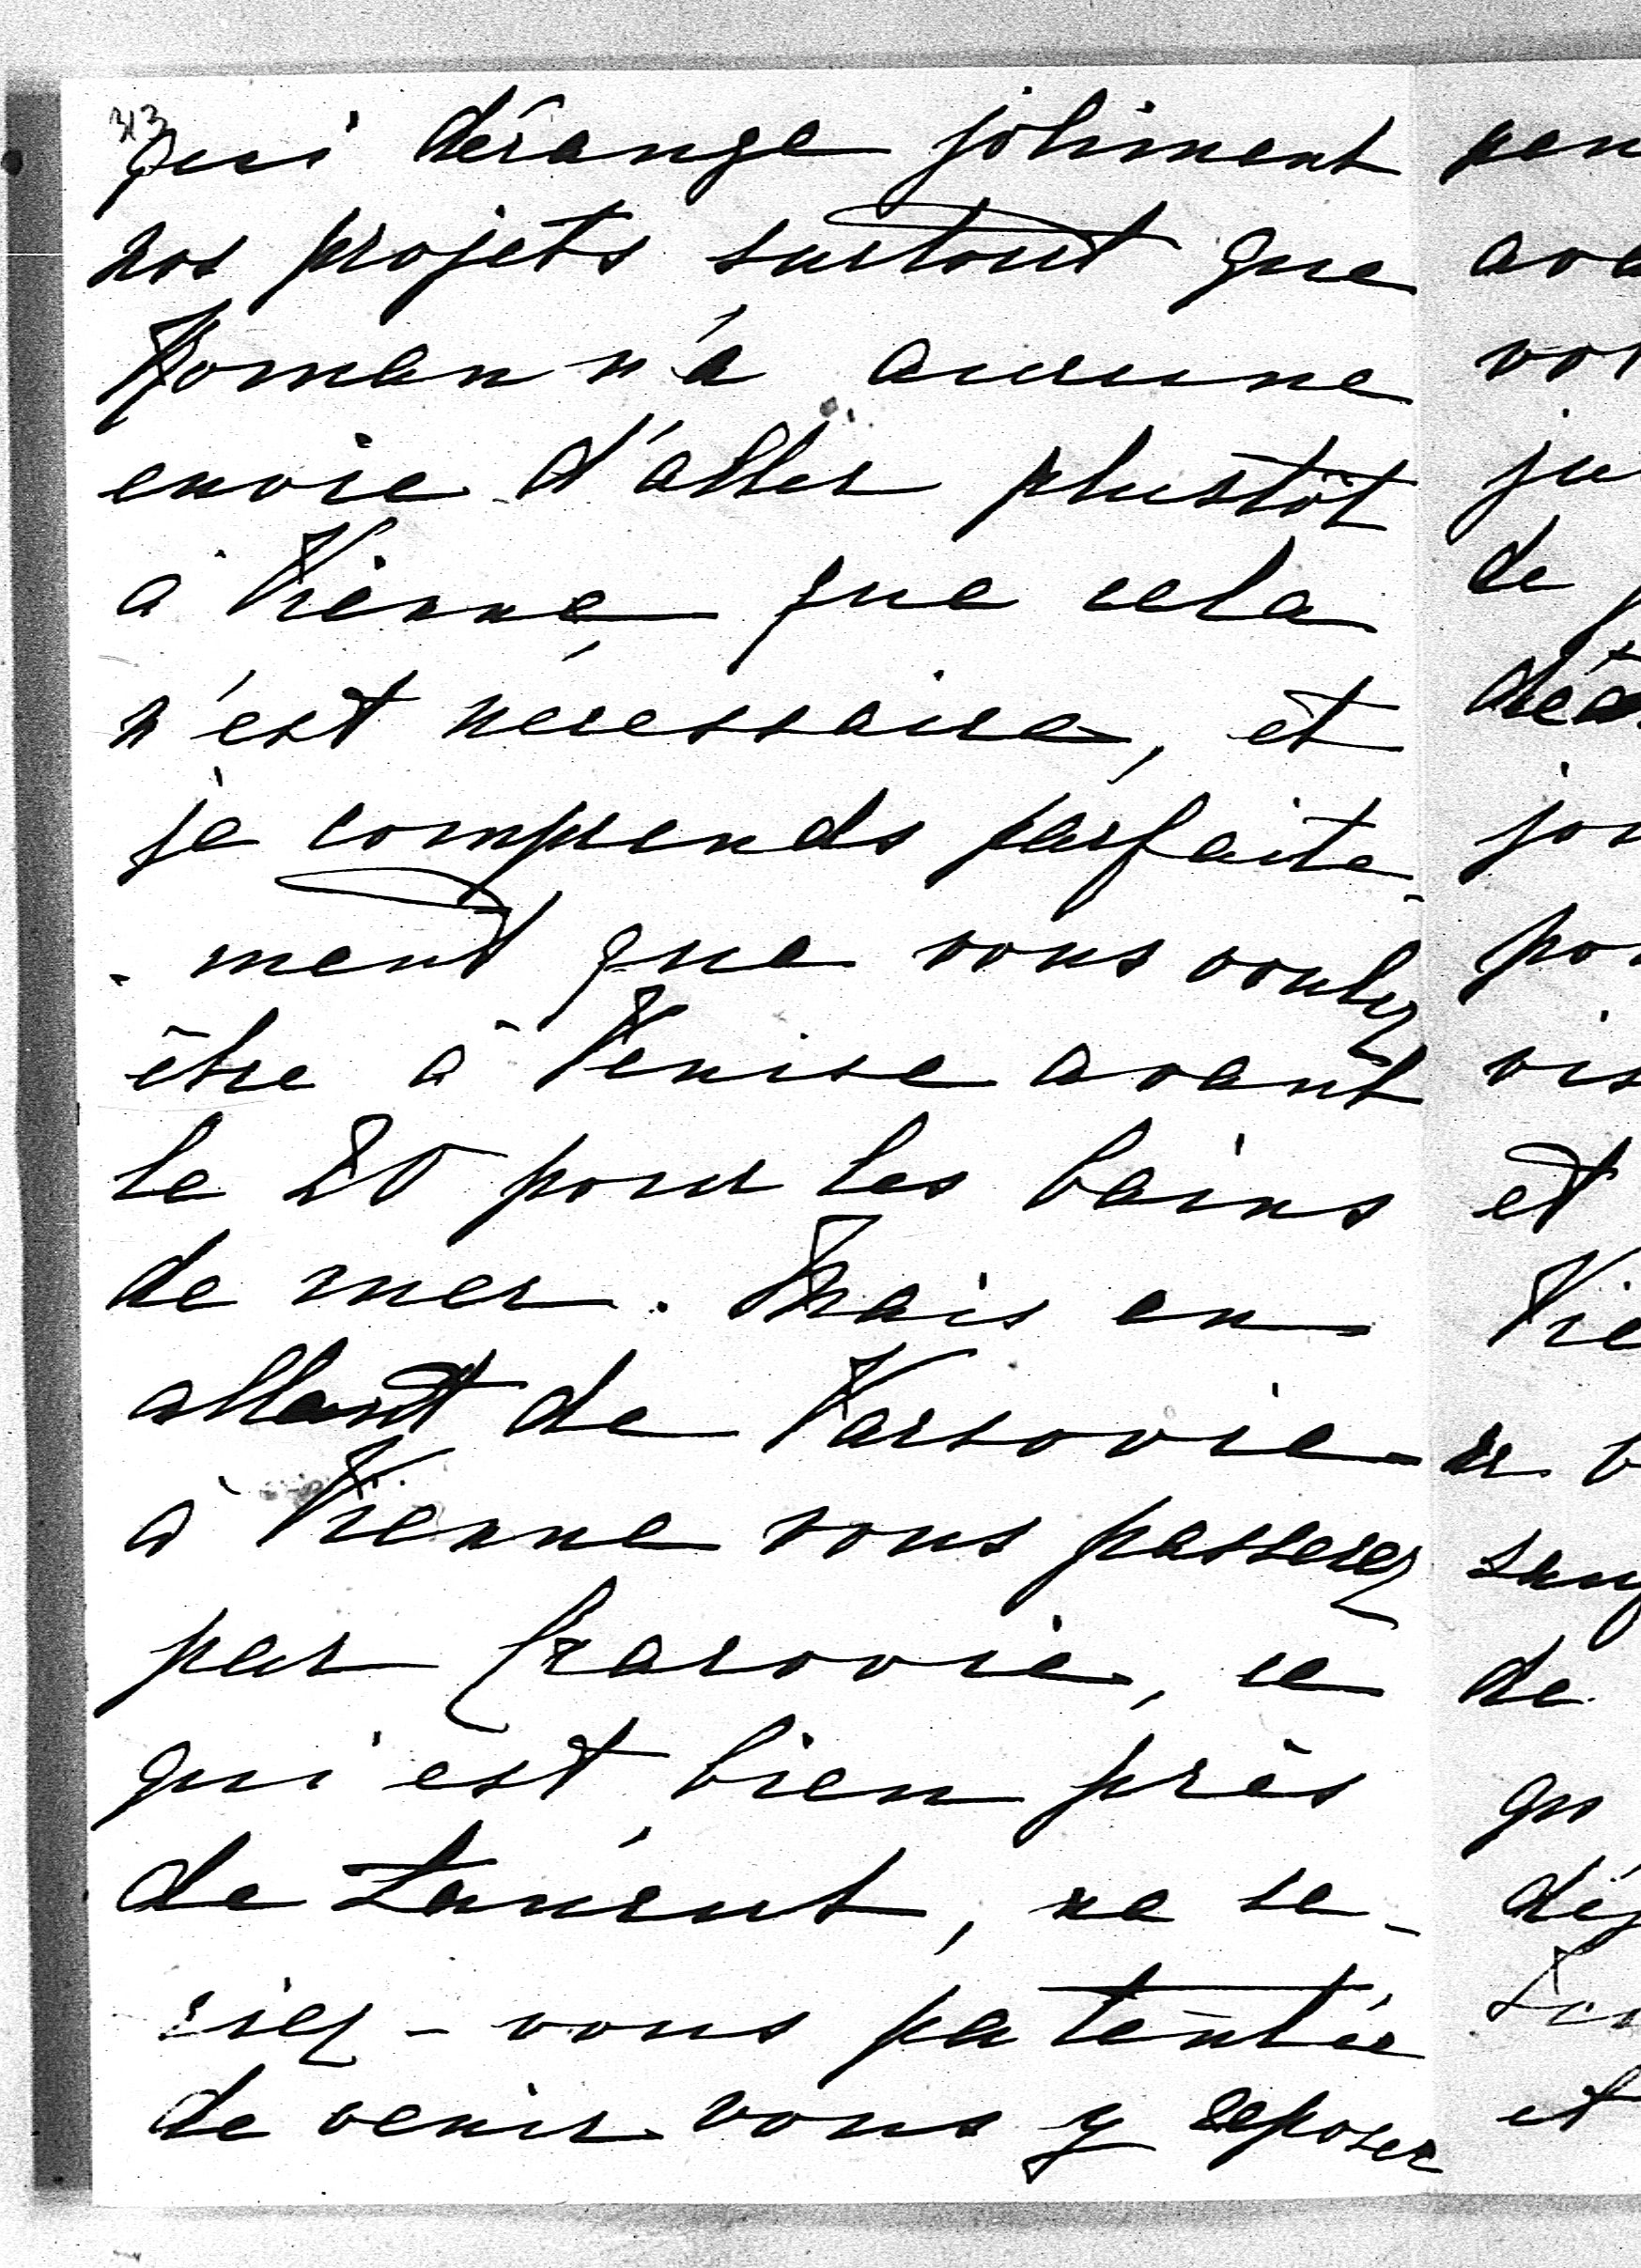 313
qui dérange joliment
nos projets surtout que
Roman n'a aucune
envie d'aller plustôt
à Vienne, que cela
n'est nécessaire, et
je comprends parfaite-
-ment que vous voulez
être à Venise avant
le 20 pour les bains
de mer. Mais en
allant de Varsovie
à Vienne vous passerez
par Cracovie, ce
qui est bien près
de Łancut, ne se-
riez-vous pa tentée
de venir vous y reposer